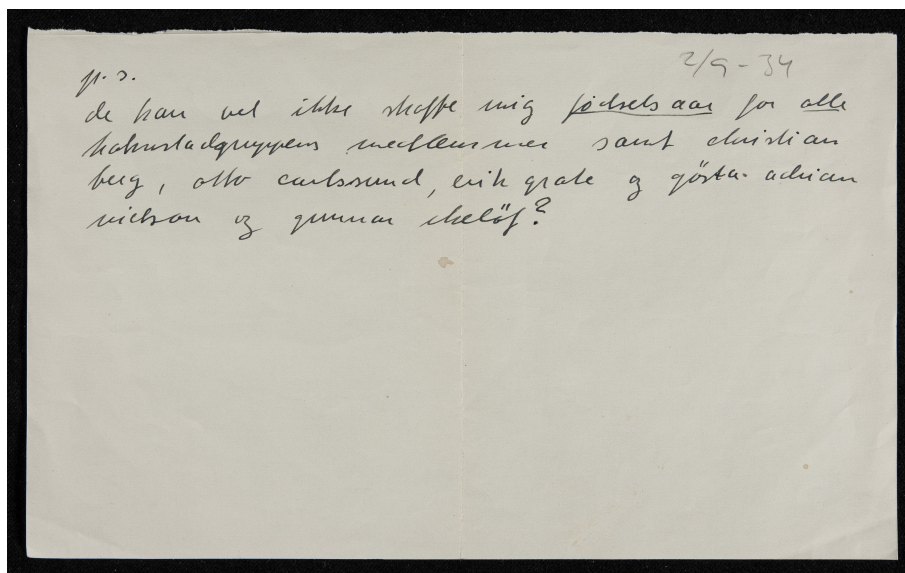 2/9-34
p.s.
de kan vel ikke skaffe mig fødselsaar for alle
halmstadgruppens medlemmer samt christian
berg, otto carlssund, erik grate og gösta adrian
nielson og gunnar ekelöf?